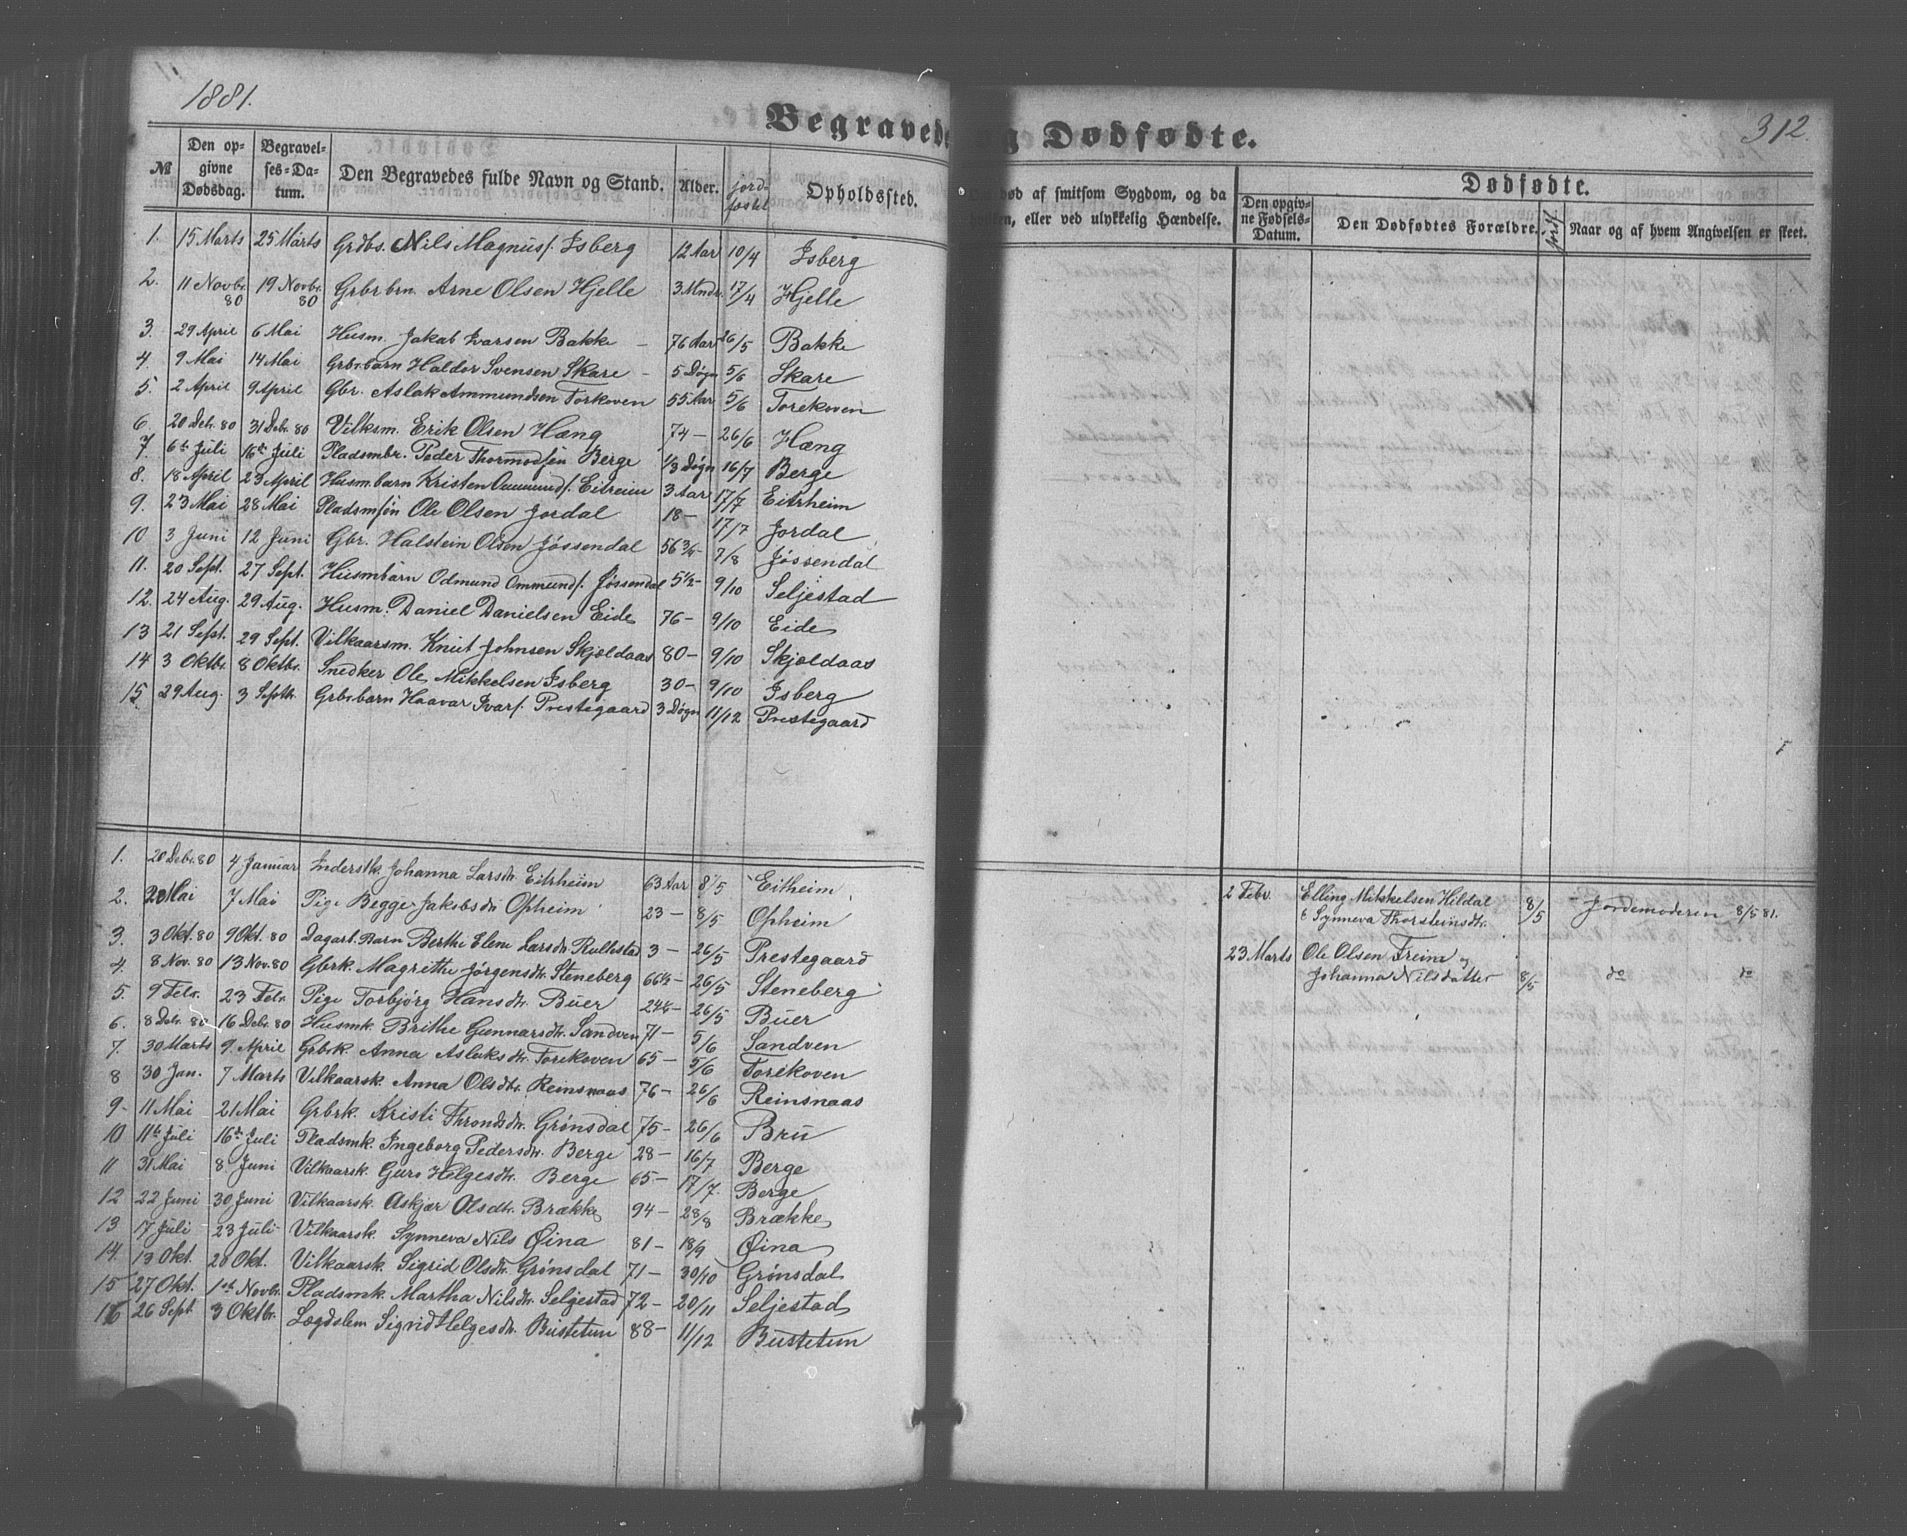 1881.
312.
Begravede
g Dødfødte.
№ Den opgivne Dødsdag. Begravelses-Datum. Den Begravedes fulde Navn og Stand. Alder. jordfæstet Opholdssted.
død af smitsom Sygdom, og da
eller ved ulykkelig Hændelse.
Dødfødte.
Den opgivne Fødsels-Datum. Den Dødfødtes Forældre. Naar og af hvem Angivelsen er skeet.
1. 15 Marts 25 Marts Grdbs. Nils Magnusf. Isberg 12 Aar 10/4 Isberg
2. 11 Novbr. 80 19 Novbr. 80 Grbrbrn. Arne Olsen Hjelle 3 Mndr. 17/4 Hjelle
3. 29 April 6 Mai Husm. Jakob Ivarsen Bakke – 76 Aar 26/5 Bakke
4. 9 Mai 14 Mai Grbsbarn Haldor Svensen Skare – 5 Døgn 5/6 Skare
5. 2 April 9 April Gbr. Aslak Ammundsen Torkoven 55 Aar 5/6 Torekoven
6. 20 Debr. 80 31 Debr. 80 Vilksm. Erik Olsen Hæng 74 – 26/6 Hæng
7. 6te Juli 16de Juli Pladsmbr. Peder Thormodsen Berge 1/3 Døgn 16/7 Berge
8. 18 April 23 April Husmbarn Kristen Ommundf. Eitreim 3 Aar 17/7 Eitrheim
9. 23 Mai 28 Mai Pladsmsøn Ole Olsen Jordal 18 – 17/7 Jordal
10 3 Juni 12 Juni Gbr. Halstein Olsen Jøssendal 56 3/4 – 7/8 Jøssendal
11. 20 Sept. 27 Sept. Husmbarn Odmund Ommundf. Jøssendal 5 1/2 – 9/10 Seljestad
12. 24 Aug. 29 Aug. Husm. Daniel Danielsen Eide 76 – 9/10 Eide
13 21 Sept. 29 Sept. Vilkaarsm. Knut Johnsen Skjældaas 80 – 9/10 Skjældaas
14 3 Oktbr. 8 Oktbr. Snedker Ole Mikkelsen Isberg 30 – 9/10 Isberg
15 29 Aug. 3 Septb. Grbsbarn Haavar Ivarf. Prestegaard 3 Døgn 11/12 Prestegaard
1. 20 Debr. 80 4 Januar Inderstk. Johanna Larsdr. Eitrheim 63 Aar 8/5 Eitheim
2. 2 Mai 7 Mai Pige Begge Jakobsdr. Opheim 23 – 8/5 Opheim
3. 3 Okt. 80 9 Okt. 80 Dagarl. Barn Berthe Elene Larsdr. Rullestad 3 – 26/5 Prestegaard
4. 8 Nov. 80 13 Nov. 80 Gbrk. Magrethe Jørgensdr. Steneberg 66 1/2 – 26/5 Steneberg
5. 9 Febr. 23 Febr. Pige Torbjørg Hansdr. Buer 24 1/4 – 26/5 Buer
6. 8 Debr. 80 16 Debr. 80 Husmk. Brithe Gunnarsdr. Sandven 71 – 5/6 Sandven
7. 30 Marts 9. April Grbrk. Anna Aslaksdr. Torekoven 65 – 5/6 Torekoven
8 30 Jan. 7 Marts Vilkaarsk. Anna Olsdtr. Reinsnaas 76 – 26/6 Reinsnaas
9 – 11 Mai 21 Mai Grbrk. Kristi Throndsdr. Grønsdal 75 – 26/6 Bru
10 11te Juli 16de Juli Pladsmk. Ingeborg Pedersdr. Berge 28 – 16/7 Berge
11 31 Mai 8. Juni Vilkaarsk. Guro Helgesdr. Berge 65 – 17/7. Berge
12 22 Juni 30 Juni Vilkaarsk. Askjær Olsdtr. Brække 94 – 28/8 Brække
13 17 Juli 23 Juli Vilkaarsk. Synneva Nils Øina 81 – 18/9 Øina
14. 13 Okt. 20 Okt. Vilkaarsk. Sigrid Olsdr. Grønsdal 71 – 30/10 Grønsdal
15 27 Okt. 1ste Novbr. Pladsmk. Martha Nilsdr. Seljestad 72 – 20/11 Seljestad
16 26 Sept. 3 Oktbr. Lægdslem Sigrid Helgesdr. Bustetun 88 – 11/12 Bustetun
2 Febr. Elling Mikkelsen Hildal & Synneva Thorsteinsdtr. 8/5 Jordemoderen 8/5 81.
23 Marts Ole Olsen Freim og Johanna Nilsdatter 8/5 do do